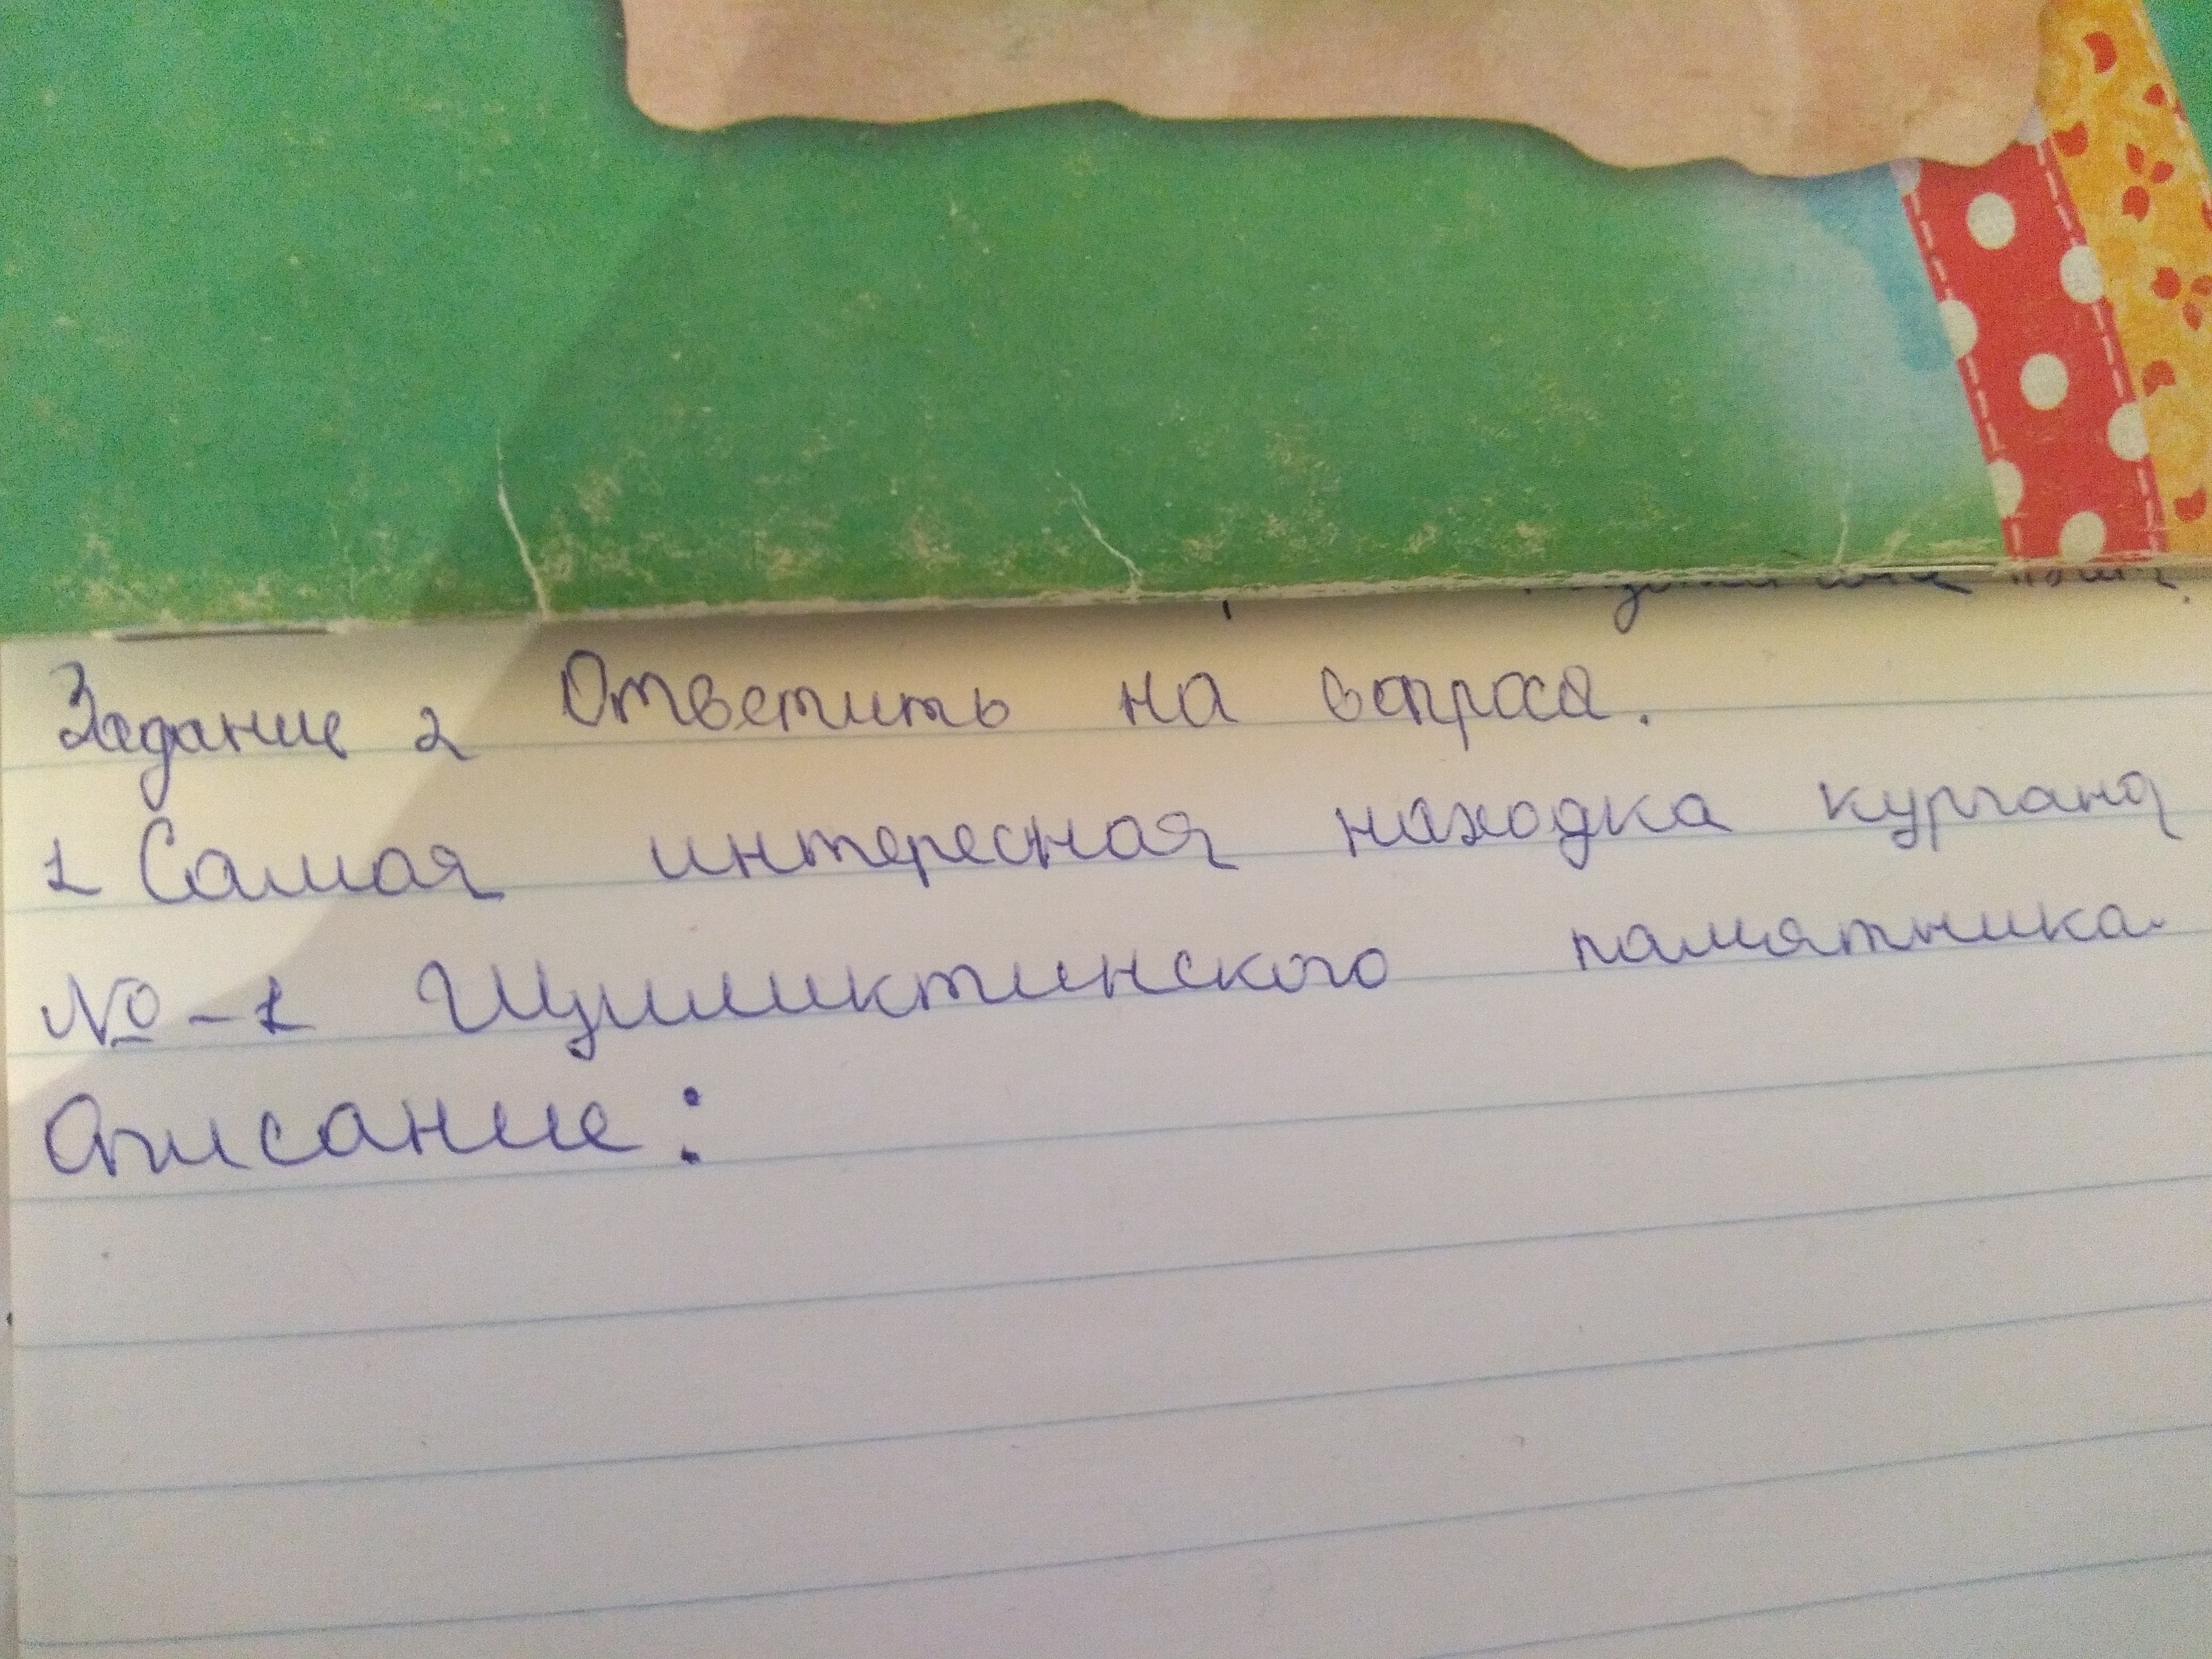 Задание 2 Ответить на вопросы.
1 Самая интересная находка кургана
№-1 Шиликтинского памятника
Описание: